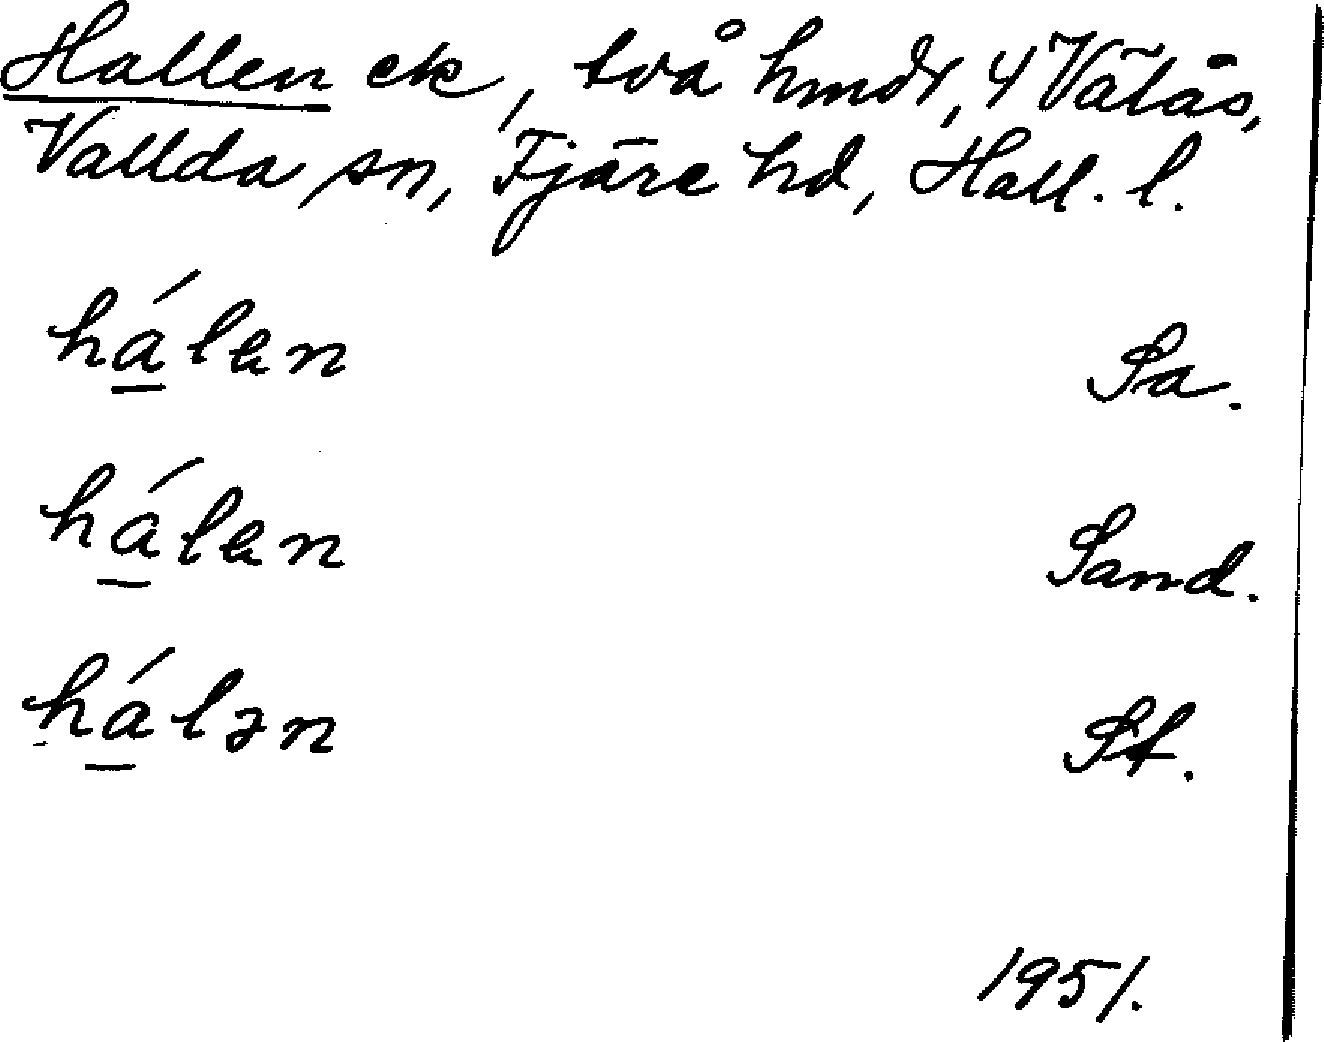 Hallen ek, två hmdr, 4 Vätås,
Vallda sn, Fjäre hd, Hall. l.
hálen Sa.
hálen Sand.
hálən St.
1951.